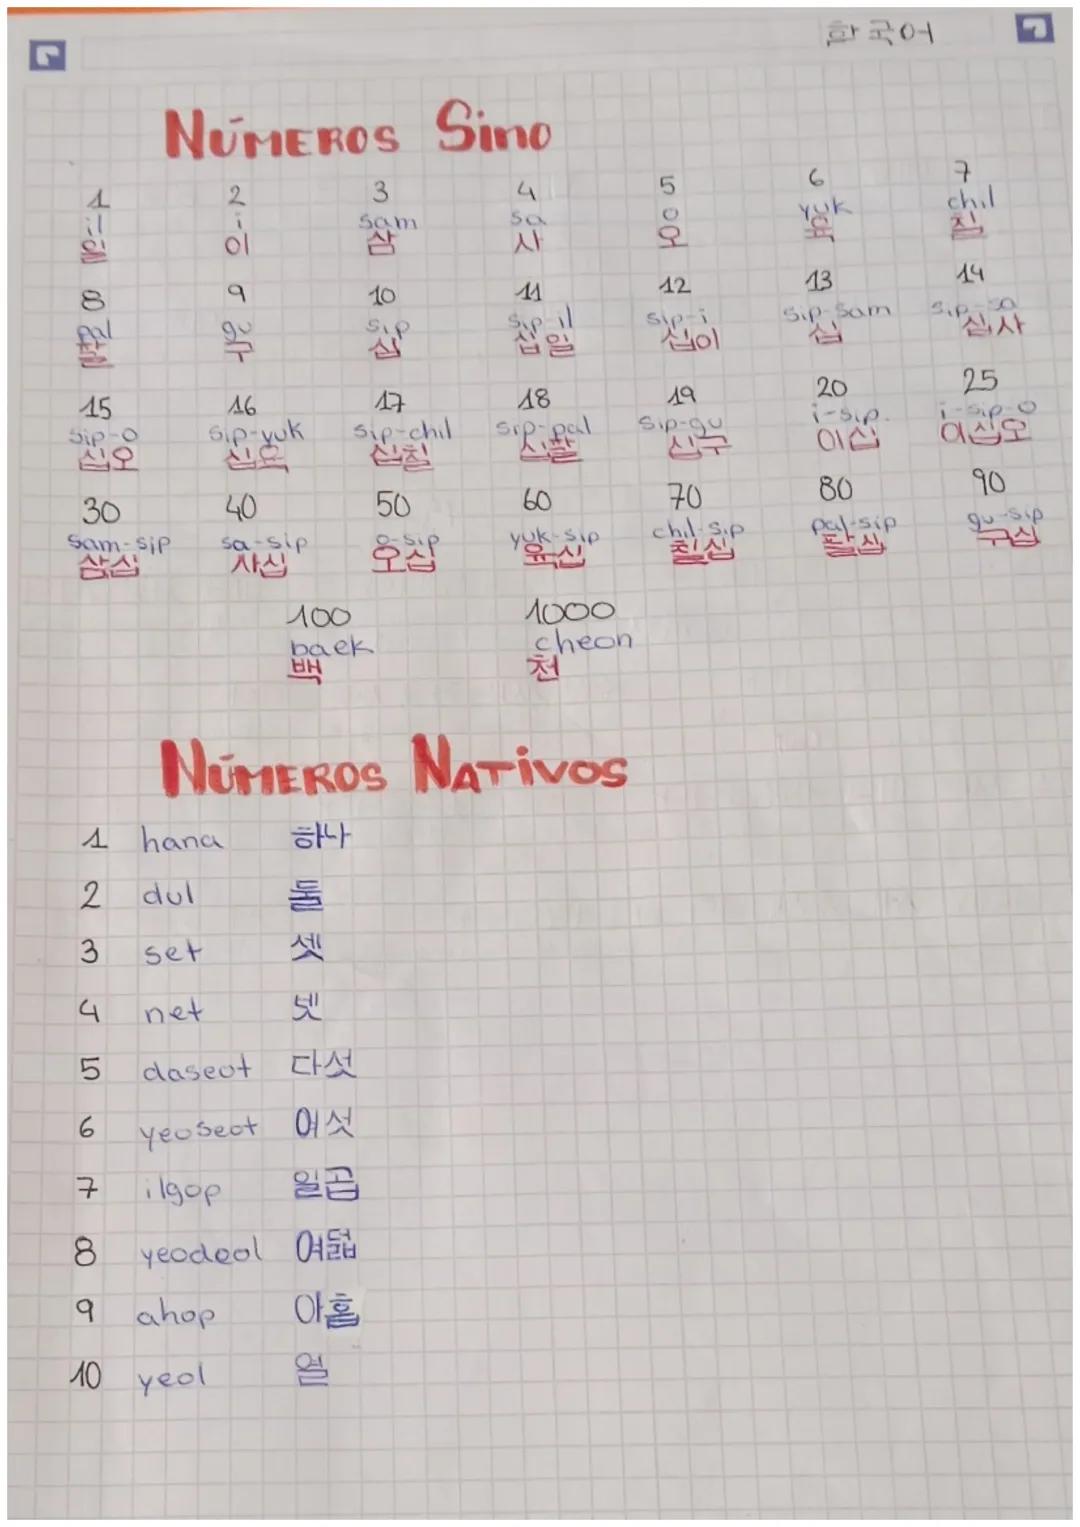 한국어
NÚMEROS Sino
1 2 3 4 5 6 7
il i sam sa o yuk chil
일 이 삼 사 오 육 칠
8 9 10 11 12 13 14
pal gu sip sip-il sip-i sip-sam sip-sa
팔 구 십 십일 십이 십 십사
15 16 17 18 19 20 25
sip-o sip-yuk sip-chil sip-pal sip-gu i-sip. i-sip-o
십오 십육 십칠 십팔 십구 이십 이십오
30 40 50 60 70 80 90
sam-sip sa-sip o-sip yuk-sip chil-sip pal-sip gu-sip
삼십 사십 오십 육십 칠십 팔십 구십
100 1000
baek cheon
백 천
NÚMEROS NATIVOS
1 hana 하나
2 dul 둘
3 set 셋
4 net 넷
5 daseot 다섯
6 yeoseot 여섯
7 ilgop 일곱
8 yeodeol 여덟
9 ahop 아홉
10 yeol 열